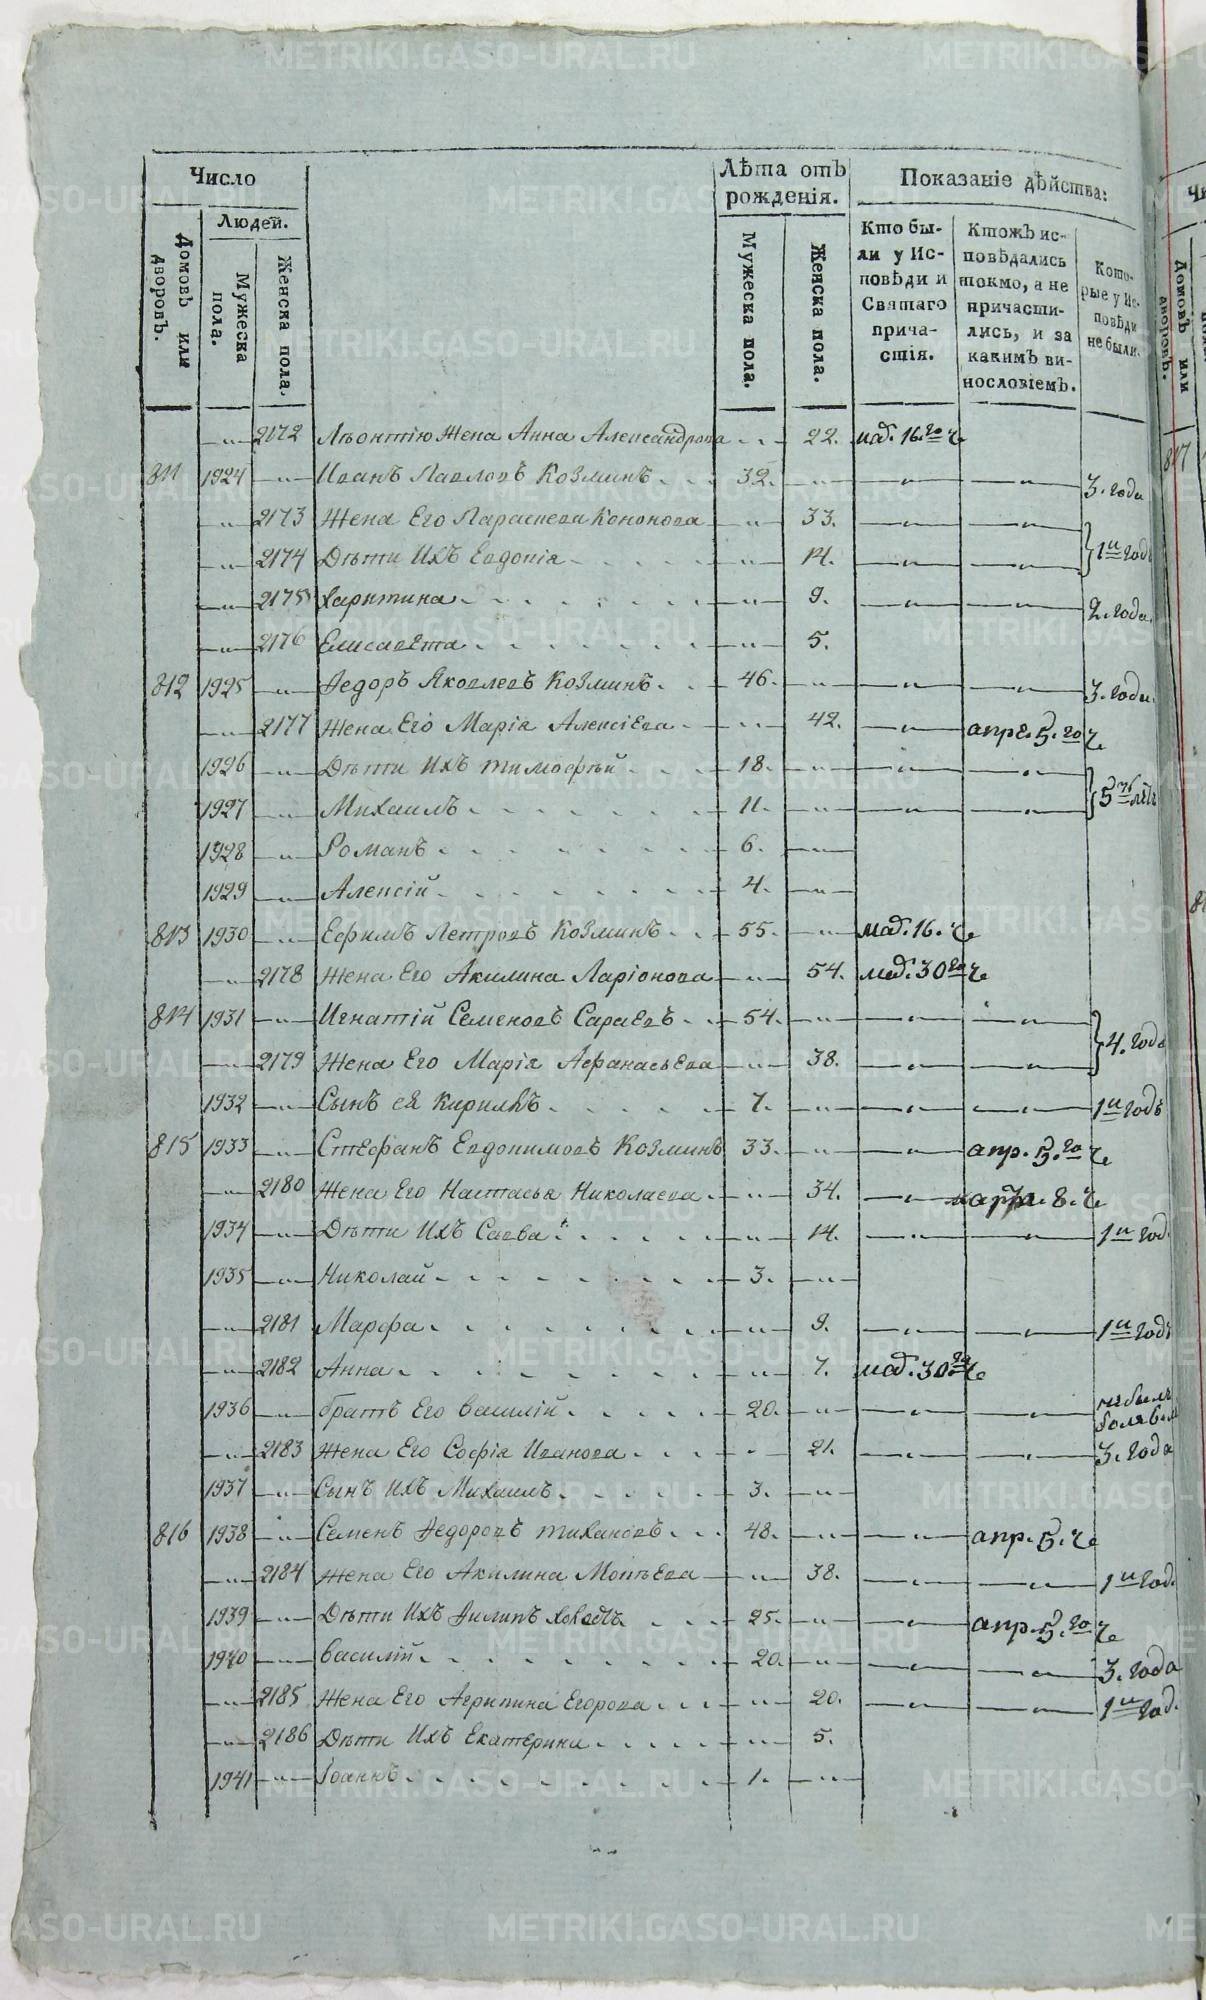 Число
Лѣта отъ рожденія.
Показаніе дѣйства:
Людей.
Домовъ или дворовъ.
Мужеска пола.
Женска пола.
Мужеска пола.
Женска пола.
Кто были у Исповѣди и Святаго причастія.
Ктожъ исповѣдались токмо, а не причастились, и за какимъ винословіемъ.
Которые у Исповѣди не были.
2172 Леонтію Жена Анна Александрова 22. маї. 16.го ч
811 1924 Иванъ Павловъ Козминъ 32. 3. года
2173 Жена Его Параскева Кононова 33.
2174 Дѣти Ихъ Евдокія 14. } 1й годъ
2175 Харитина 9. 2. года
2176 Елисавета 5.
812 1925 Ѳедоръ Яковлевъ Козминъ 46. 3. года.
2177 Жена Его Марія Алексіева 42. апре. 5.го ч
1926 Дѣти Ихъ Тимофѣй 18.
1927 Михаилъ 11. } 5ть лѣтъ
1928 Романъ 6.
1929 Алексій 4.
813 1930 Ефимъ Петровъ Козминъ 55. маї. 16. ч
2178 Жена Его Акилина Ларіонова 54. маї. 30го ч
814 1931 Игнатій Семеновъ Сараевъ 54.
2179 Жена Его Марія Афанасьева 38. } 4. года
1932 Сынъ ея Кирилъ 7. 1й годъ
815 1933 Стефанъ Евдокимовъ Козминъ 33. апр. 5.го ч
2180 Жена Его Настасья Николаева 34. марта. 8. ч
1934 Дѣти Ихъ Савва 14. 1й год.
1935 Николай 3.
2181 Марфа 9. 1й годъ
2182 Анна 7. маї. 30.го ч
1936 братъ Его Василій 20.
2183 Жена Его Софія Иванова 21. 3. года
1937 Сынъ Ихъ Михаилъ 3.
816 1938 Семенъ Ѳедоровъ Тихановъ 48. апр. 5. ч
2184 Жена Его Акилина Мокѣева 38. 1й год.
1939 Дѣти Ихъ Филипъ 25. апр. 5.го ч
1940 Василій 20. 3. года
2185 Жена Его Агрипина Егорова 20. 1й год.
2186 Дѣти Ихъ Екатерина 5.
1941 Іоаннъ 1.
817
METRIKI.GASO-URAL.RU